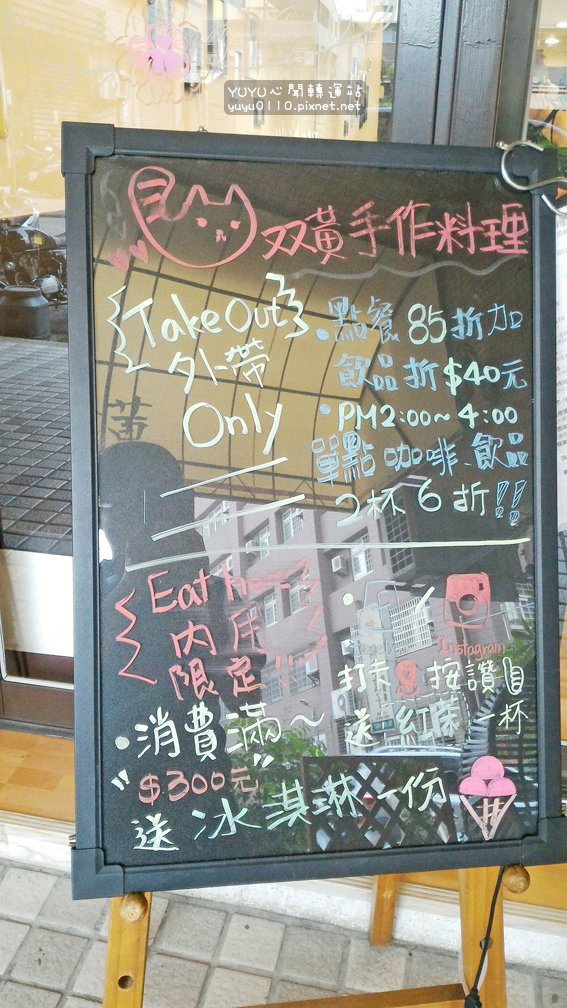 YUYU心聞轉運站
yuyu0110.pixnet.net
双黃手作料理
Take Out
外帶
Only
•點餐85折加
飲品折$40元
•PM2:00~4:00
單點咖啡、飲品
2杯6折!!
Eat here
內用
限定!!
Instagram
打卡 按讚
送 紅茶 一杯
•消費滿~
"$300元"
送 冰淇淋一份